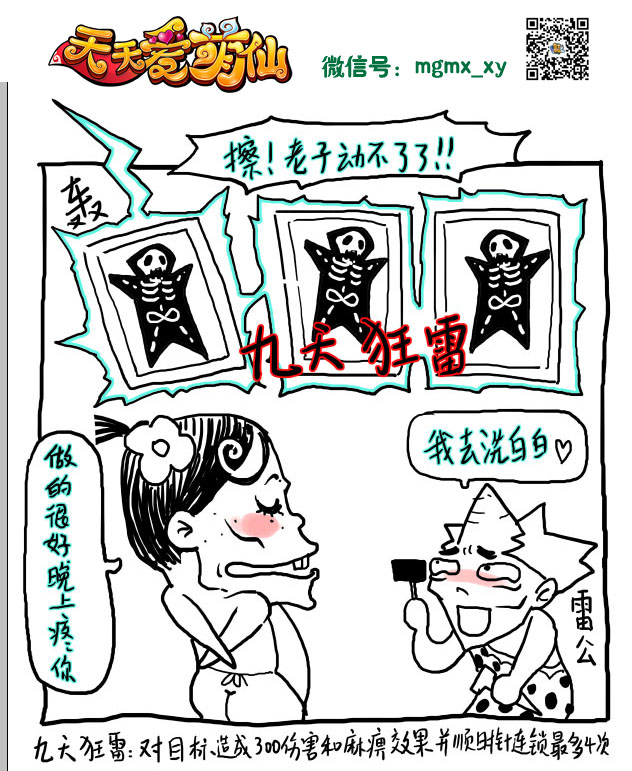 天天爱萌仙
微信号：mgmx_xy
擦！老子动不了了！！
轰
九天狂雷
做的很好晚上疼你
我去洗白白♡
雷公
九天狂雷：对目标造成300伤害和麻痹效果并顺时针连锁最多4次